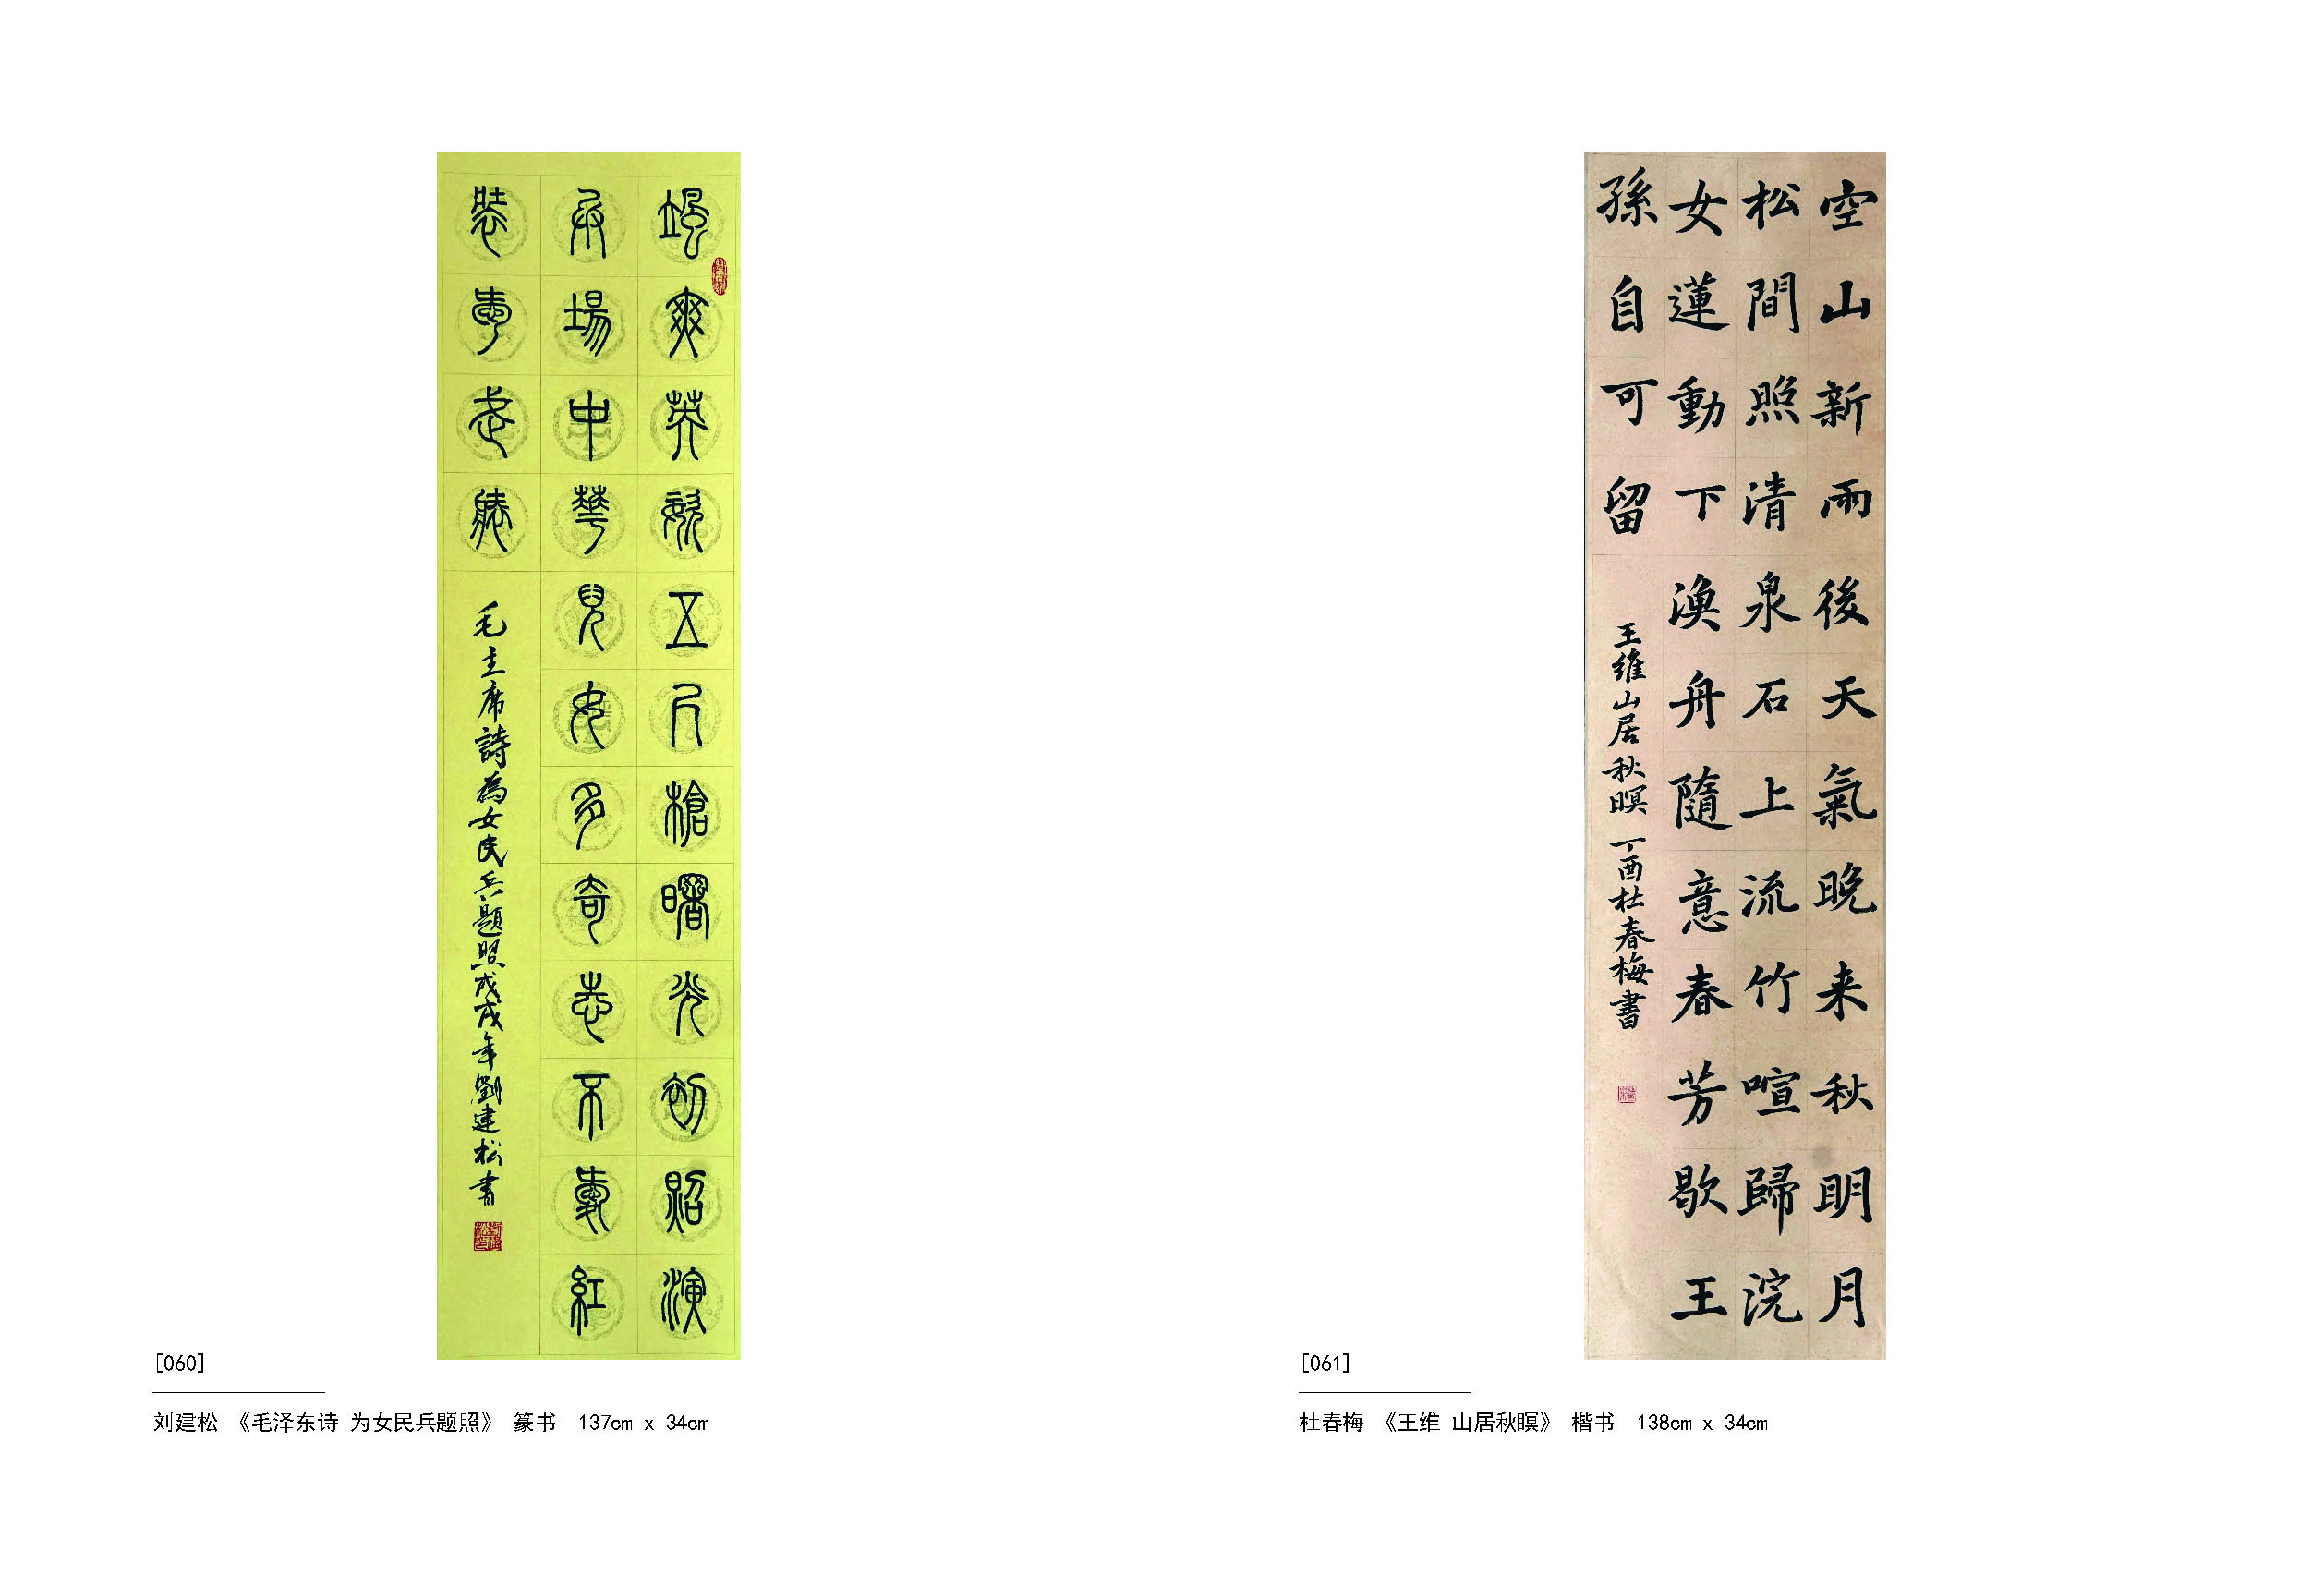 颯爽英姿五尺槍曙光初照演
兵場中華兒女多奇志不愛紅
裝愛武裝
毛主席詩為女民兵題照戊戌年劉建松書
[060]
刘建松 《毛泽东诗 为女民兵题照》 篆书 137cm x 34cm
空山新雨後天氣晚来秋明月
松間照清泉石上流竹喧歸浣
女蓮動下漁舟隨意春芳歇王
孫自可留
王維山居秋暝 丁酉杜春梅書
[061]
杜春梅 《王维 山居秋暝》 楷书 138cm x 34cm